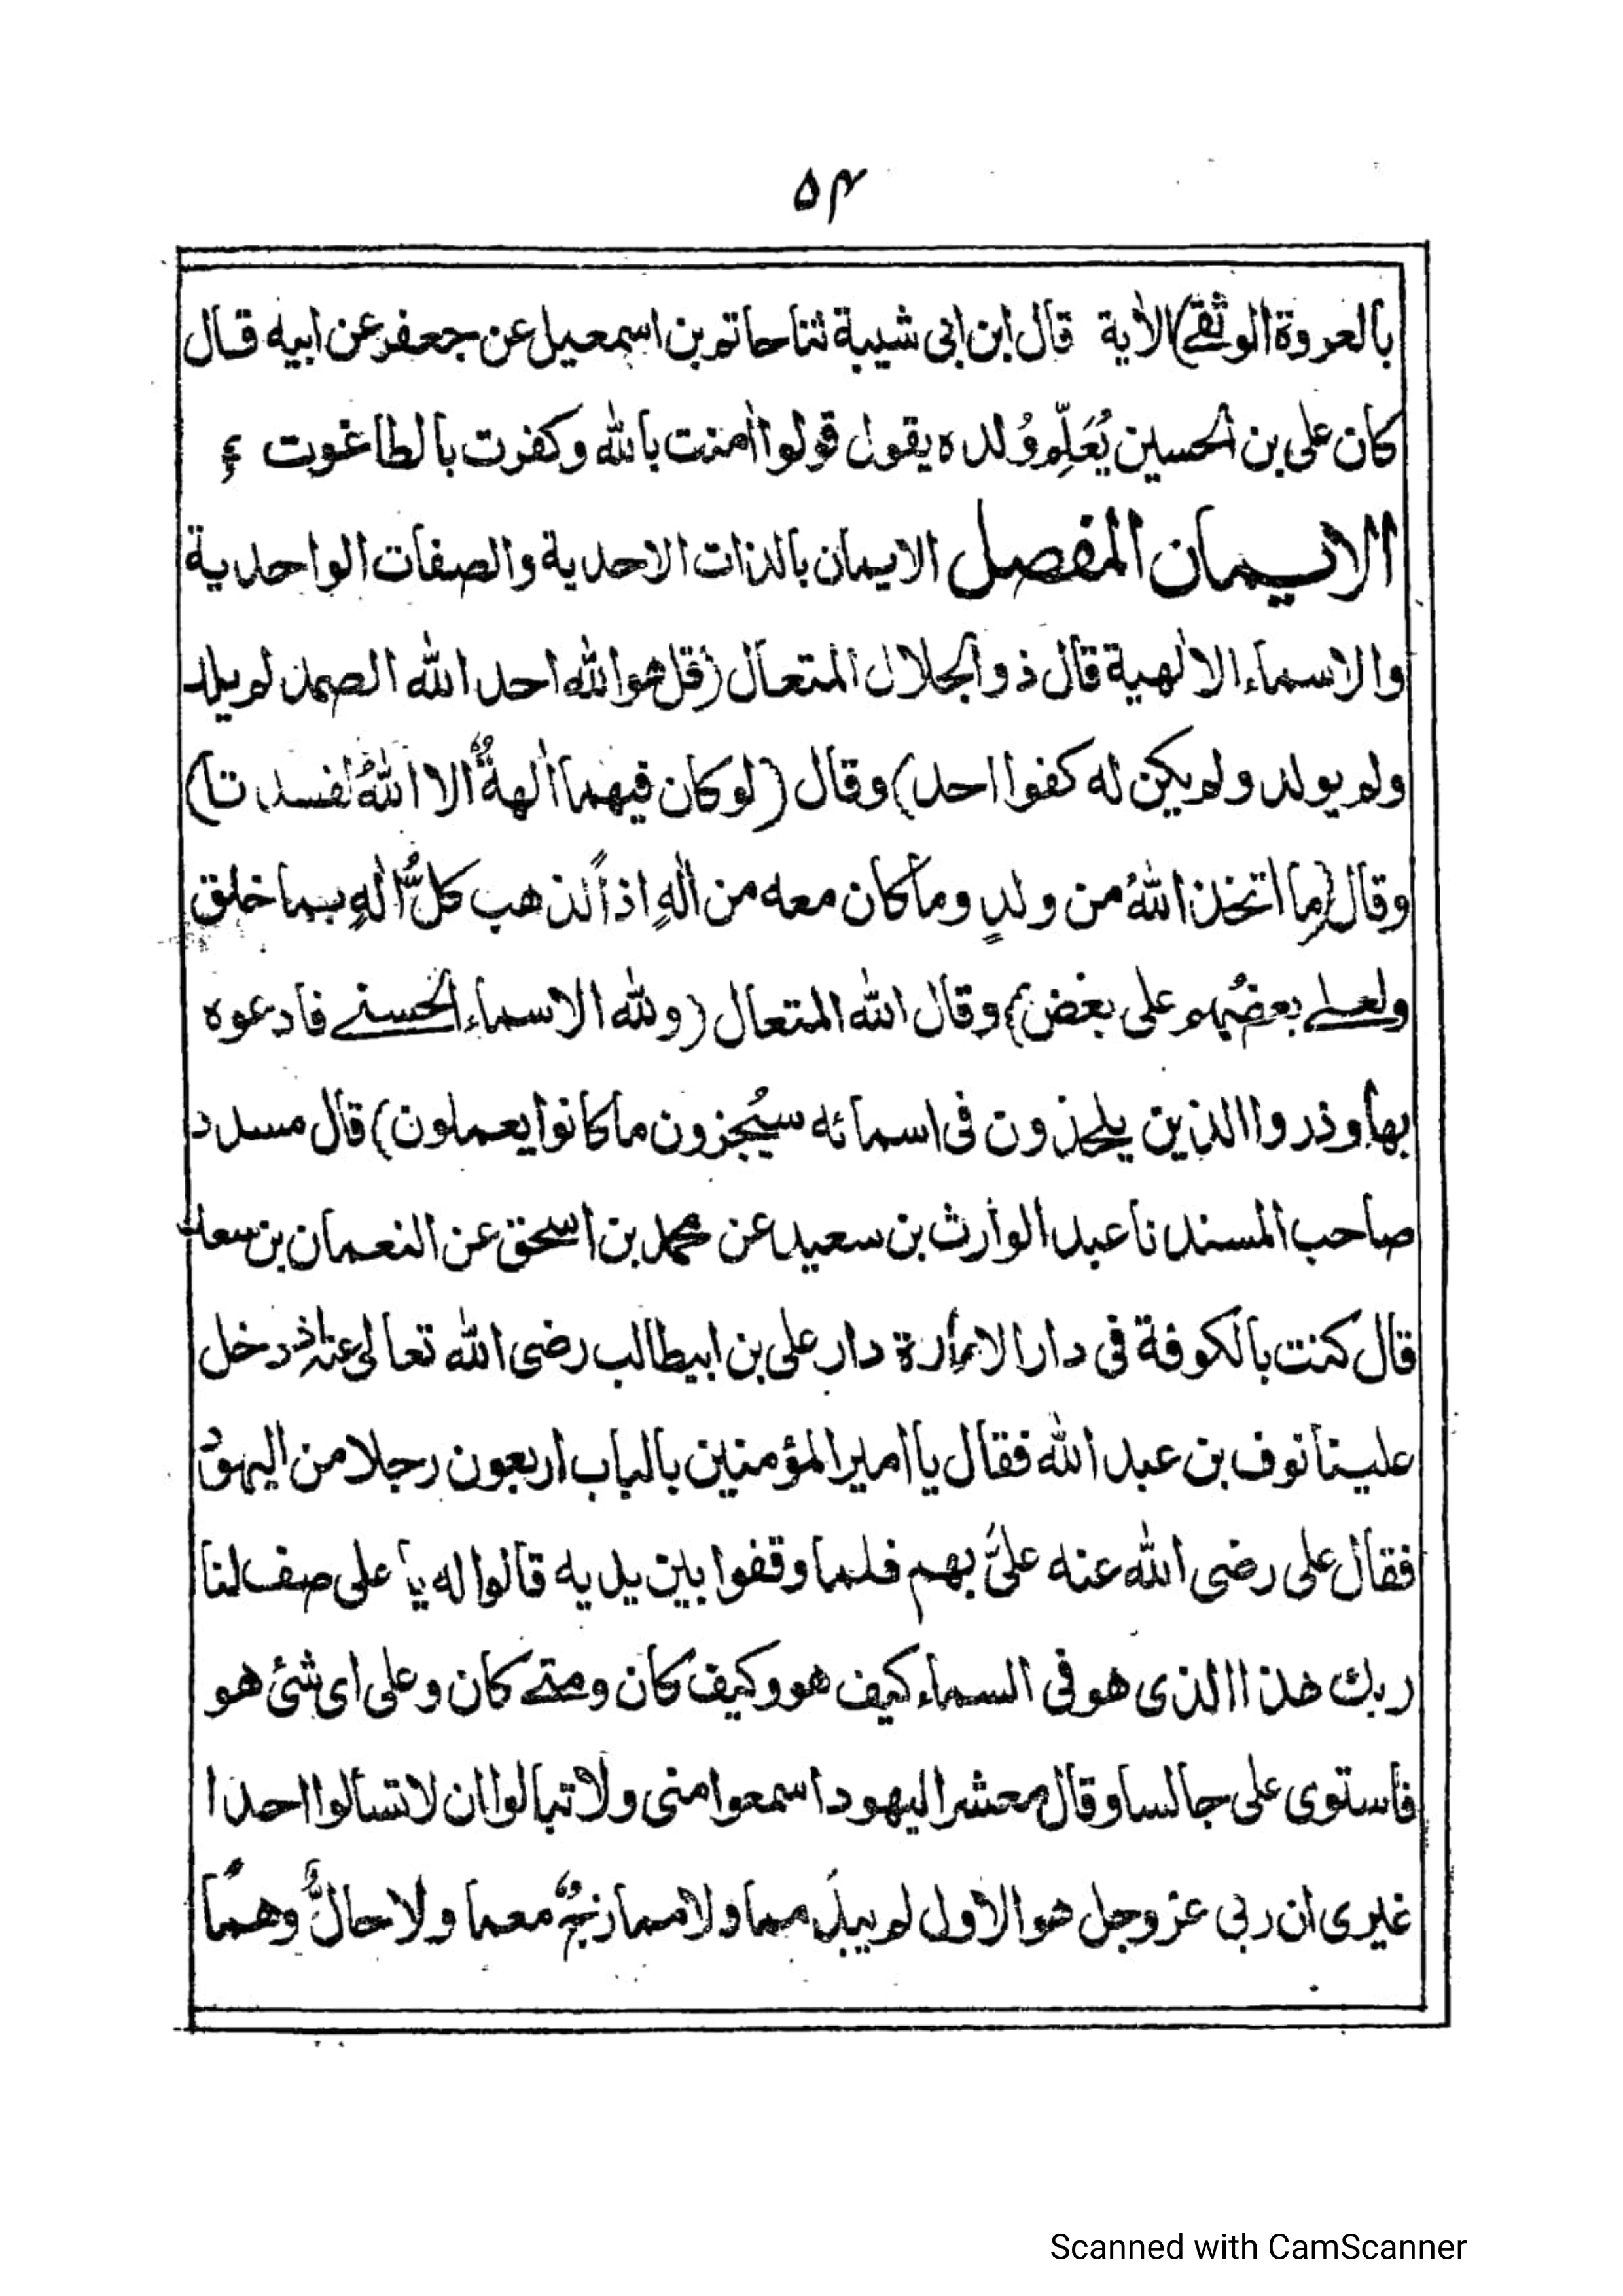 ۵۴
بالعروة الوثقے) الأية قال ابن ابی شيبة ثنا حاتم بن اسمعيل عن جعفر عن ابيه قال
كان علی بن الحسين يُعَلِّم وُلده يقول قولوا اٰمنت بالله وكفرت بالطاغوت
الايمان المفصل الايمان بالذات الاحدية والصفات الواحدية
والاسماء الالٰهية قال ذو الجلال المتعال (قل هو الله احد الله الصمد لم يلد
ولم يولد ولم يكن له كفوا احد) وقال (لو كان فيهما اٰلهةٌ الا اللهُ لفسدتا)
وقال (ما اتخذ اللهُ من ولدٍ وما كان معه من الٰهٍ اذاً لذهب كلُّ الٰهٍ بما خلق
ولعلے بعضُهم علی بعض) وقال الله المتعال (ولله الاسماء الحسنے فادعوه
بها وذروا الذين يلحدون فی اسمائه سيُجزون ما كانوا يعملون) قال مسدد
صاحب المسند نا عبد الوارث بن سعيد عن محمد بن اسحٰق عن النعمان بن سعد
قال كنت بالكوفة فی دار الامارة دار علی بن ابيطالب رضی الله تعالی عنه اذ دخل
علينا نوف بن عبد الله فقال يا امير المؤمنين بالباب اربعون رجلا من اليهود
فقال علی رضی الله عنه علیَّ بهم فلما وقفوا بين يديه قالوا له يا علی صف لنا
ربك هذا الذی هو فی السماء كيف هو وكيف كان ومتے كان وعلی ای شئ هو
فاستوی علی جالسا وقال معشر اليهود اسمعوا منی ولا تبالوا ان لا تسألوا احدا
غيری ان ربی عز وجل هو الاول لم يبدُ مما ولا ممازجٌ معما ولا حالٌّ وهمًا
Scanned with CamScanner